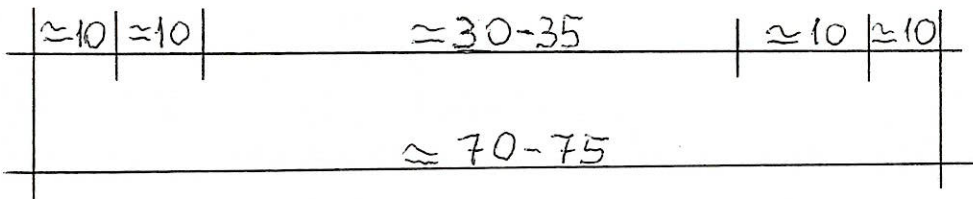 ≃10 ≃10 ≃30-35 ≃10 ≃10
≃70-75